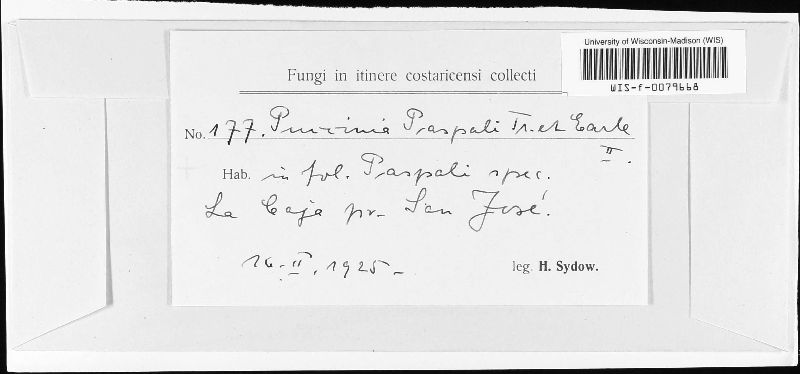 University of Wisconsin-Madison (WIS)
WIS-f-0079668
Fungi in itinere costaricensi collecti
No. 177. Puccinia Paspali Tr. et Earle
II.
Hab. in fol. Paspali spec.
La Caja pr. San José.
16. II. 1925.
leg. H. Sydow.